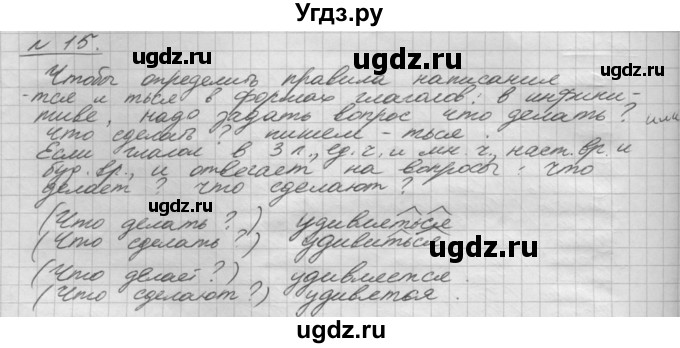 Угдз.ру
N 15.
Чтобы определить правила написания
-тся и ться в формах глаголов: в инфини-
тиве, надо задать вопрос что делать? или
что сделать? пишем -ться.
Если глагол в 3 л., ед. ч. и мн. ч., наст. вр. и
буд. вр., и отвечает на вопросы: что
делает? что сделают?
(Что делать?) удивляться
(Что сделать?) удивиться
(Что делает?) удивляется.
(Что сделают?) удивятся.
ugdz.ru
ugdz.ru
ugdz.ru
ugdz.ru
ugdz.ru
ugdz.ru
ugdz.ru
ugdz.ru
ugdz.ru